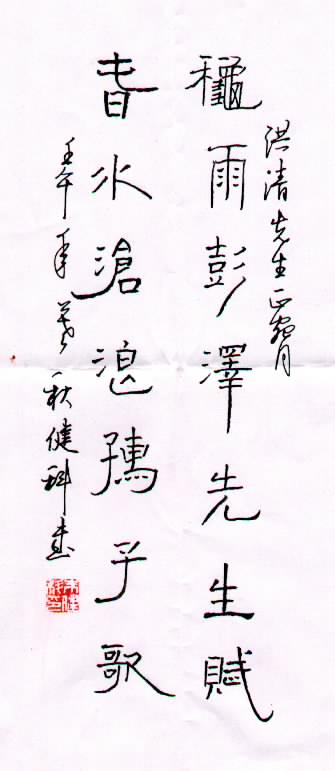 洪清先生正腕
龝雨彭澤先生賦
春水滄浪孺子歌
壬午年暮秋健科書